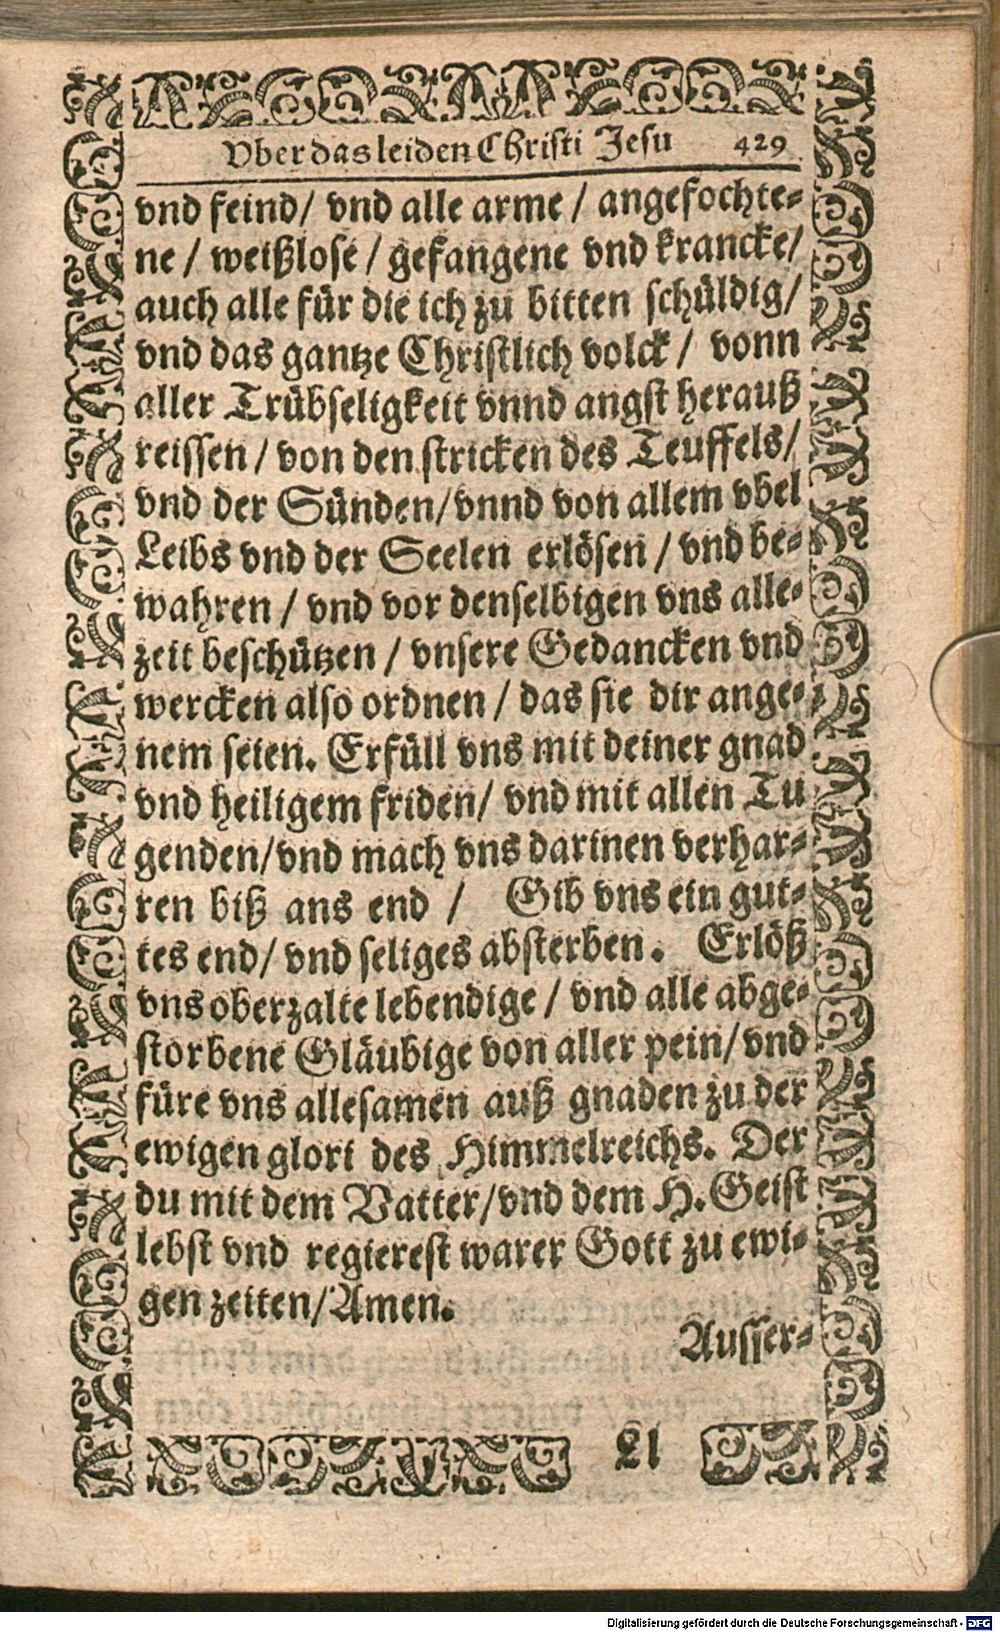 Vber das leiden Christi Jesu 429
vnd feind/ vnd alle arme / angefochte-
ne / weißlose / gefangene vnd krancke/
auch alle für die ich zu bitten schüldig/
vnd das gantze Christlich volck / vonn
aller Trübseligkeit vnnd angst herauß
reissen / von den stricken des Teuffels/
vnd der Sünden/vnnd von allem vbel
Leibs vnd der Seelen erlösen / vnd be-
wahren / vnd vor denselbigen vns alle-
zeit beschützen / vnsere Gedancken vnd
wercken also ordnen / das sie dir ange-
nem seien. Erfüll vns mit deiner gnad
vnd heiligem friden/ vnd mit allen Tu
genden/vnd mach vns darinen verhar-
ren biß ans end / Gib vns ein gut-
tes end/ vnd seliges absterben. Erlöß
vns oberzalte lebendige / vnd alle abge-
storbene Gläubige von aller pein/ vnd
füre vns allesamen auß gnaden zu der
ewigen glori des Himmelreichs. Der
du mit dem Vatter/vnd dem H. Geist
lebst vnd regierest warer Gott zu ewi-
gen zeiten/Amen.
Ausser-
Ll
Digitalisierung gefördert durch die Deutsche Forschungsgemeinschaft - DFG